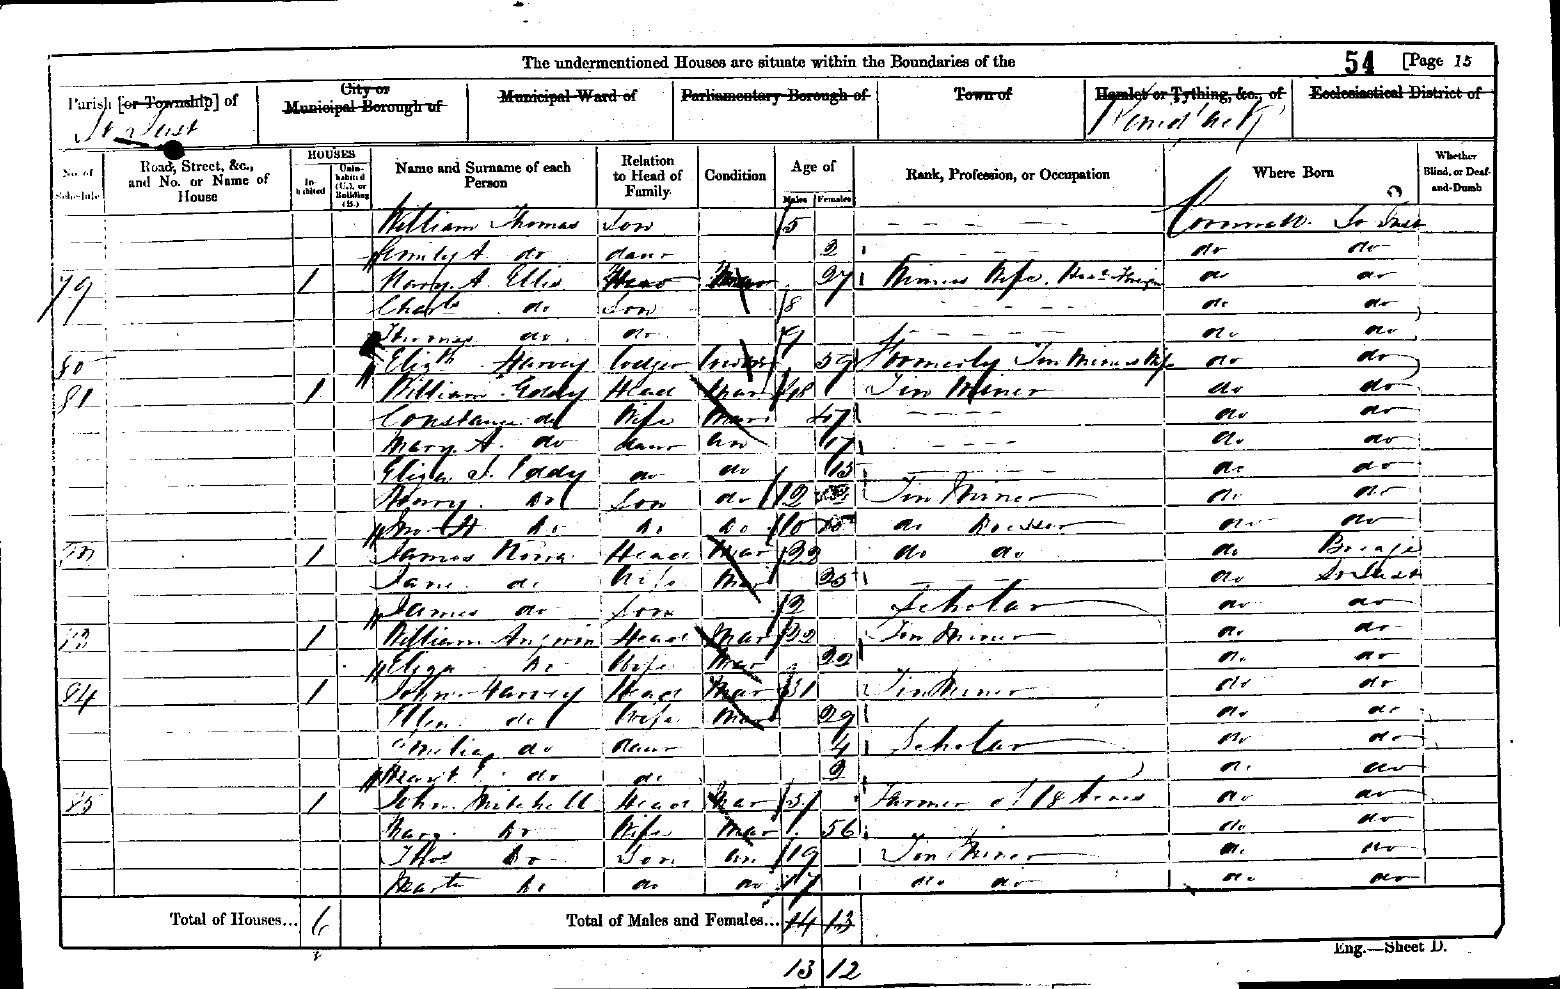 The undermentioned Houses are situate within the Boundaries of the 54 [Page 15
Parish [or Township] of City or Municipal Borough of Municipal Ward of Parliamentary Borough of Town of Hamlet or Tything, &c., of Ecclesiastical District of
St Just
No. of Schedule Road, Street, &c., and No. or Name of House HOUSES In-habited Unin-habited (U.), or Building (B.) Name and Surname of each Person Relation to Head of Family Condition Age of Males Females Rank, Profession, or Occupation Where Born Whether Blind, or Deaf-and-Dumb
William Thomas Son 5 Cornwall St Just
Emily A. do daur 2 do do
79 1 Mary A. Ellis Head Mar 27 Miners Wife do do
Charls do Son 8 do do
Thomas do do 9 do do
80 Elizth Harvey lodger 59 Formerly Tin Miners Wife do do
81 1 William Eddy Head Mar 48 Tin Miner do do
Constance do Wife Mar 47 do do
Mary A. do daur Un 17 do do
Eliza J. Eddy do do 15 do do
Henry Do Son do 12 Tin Miner do do
Jno H Do Do Do 10 do do do
1 James Head Mar 22 do do do Breage
Jane do Wife Mar 25 do St Just
James do Son 2 Scholar do do
1 William Angwin Head Mar 22 Tin Miner do do
Eliza Do Wife Mar 22 do do
84 1 John Harvey Head Mar 31 Tin Miner do do
Ellen do Wife Mar 29 do do
do daur 4 Scholar do do
do do 2 do do
85 1 John Mitchell Head Mar Farmer of 18 Acres do do
Mary Do Wife Mar 56 do do
Thos Do Son Un 19 Tin Miner do do
Do do do 17 do do do do
Total of Houses... 6 Total of Males and Females... 14 13
13 12
Eng.—Sheet D.